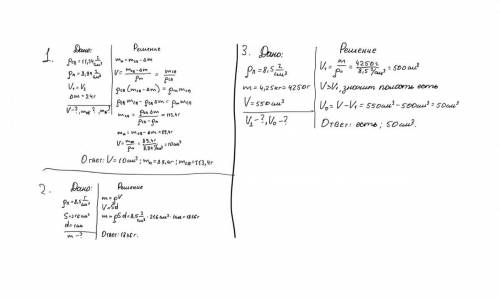 1. Дано:
ρсв = 11,34 г/см³
ρм = 8,94 г/см³
V₁ = V₂
Δm = 24г
V-?, mсв-?, mм-?
Решение
mм = mсв - Δm
V = (mсв - Δm)/ρм = mсв/ρсв
ρсв(mсв - Δm) = ρм mсв
ρсв mсв - ρсв Δm = ρм mсв
mсв = ρсв Δm/(ρсв - ρм) = 113,4г
mм = mсв - Δm = 89,4г
V = mм/ρм = 89,4г/8,94 г/см³ = 10см³
Ответ: V = 10см³; mм = 89,4г; mсв = 113,4г
2. Дано:
ρл = 8,5 г/см³
S = 216см²
d = 1см
m-?
Решение
m = ρV
V = Sd
m = ρSd = 8,5 г/см³ · 216см² · 1см = 1836г
Ответ: 1836г.
3. Дано:
ρл = 8,5 г/см³
m = 4,25кг = 4250г
V = 550см³
V₁-?, V₀-?
Решение
V₁ = m/ρл = 4250г/8,5 г/см³ = 500см³
V>V₁ значит полость есть
V₀ = V - V₁ = 550см³ - 500см³ = 50см³
Ответ: есть; 50см³.